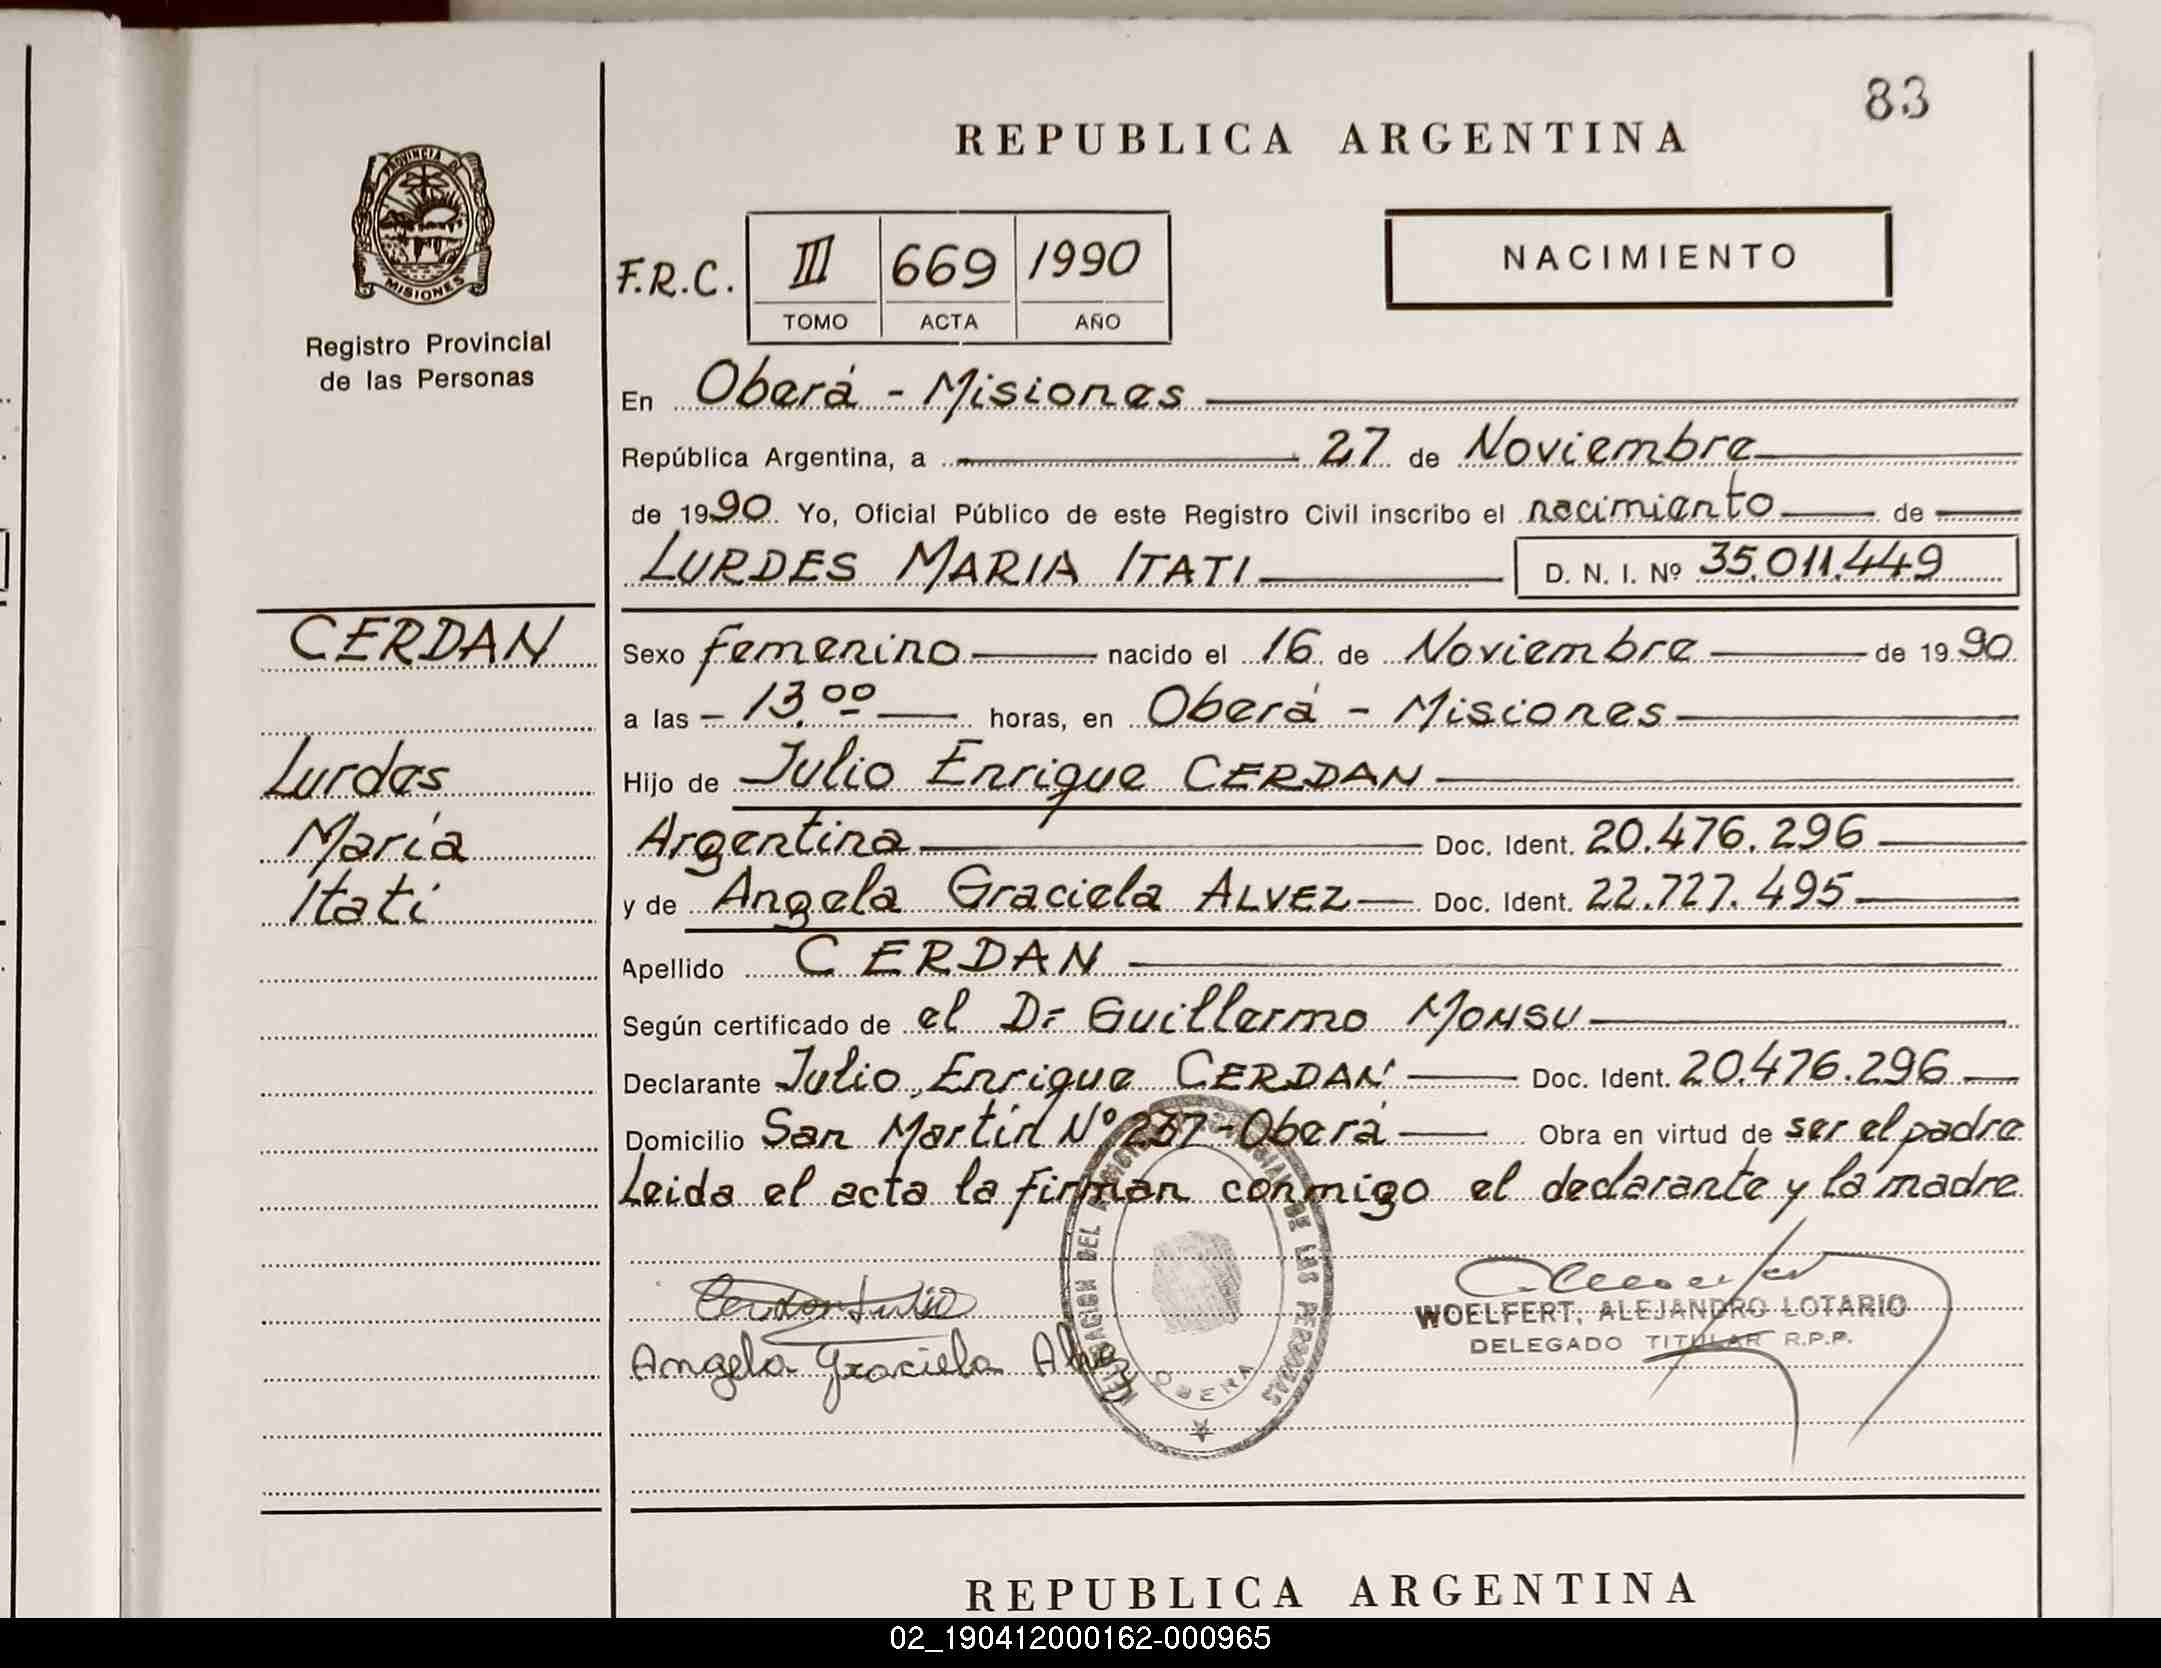 83
REPUBLICA ARGENTINA
PROVINCIA DE
MISIONES
Registro Provincial
de las Personas
F.R.C. III 669 1990
TOMO ACTA AÑO
NACIMIENTO
En Oberá - Misiones
República Argentina, a 27 de Noviembre
de 1990 Yo, Oficial Público de este Registro Civil inscribo el nacimiento de
LURDES MARIA ITATI D. N. I. Nº 35.011.449
CERDAN
Lurdes
María
Itatí
Sexo femenino nacido el 16 de Noviembre de 1990
a las - 13.00 horas, en Oberá - Misiones
Hijo de Julio Enrique CERDAN
Argentina Doc. Ident. 20.476.296
y de Angela Graciela ALVEZ Doc. Ident. 22.727.495
Apellido CERDAN
Según certificado de el Dr Guillermo MONSU
Declarante Julio Enrique CERDAN Doc. Ident. 20.476.296
Domicilio San Martín Nº 237 - Oberá Obra en virtud de ser el padre
Leida el acta la firman conmigo el declarante y la madre
Cerdan Julio
Angela Graciela Alvez
DELEGACION DEL REGISTRO PROVINCIAL DE LAS PERSONAS
OBERA
WOELFERT, ALEJANDRO LOTARIO
DELEGADO TITULAR R.P.P.
REPUBLICA ARGENTINA
02_190412000162-000965